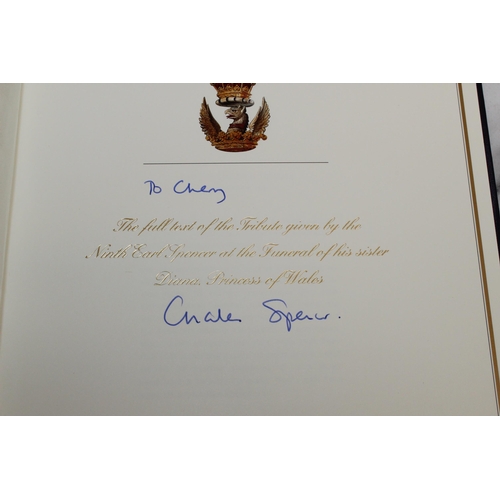 To Chery
The full text of the Tribute given by the
Ninth Earl Spencer at the Funeral of his sister
Diana, Princess of Wales
Charles Spencer.